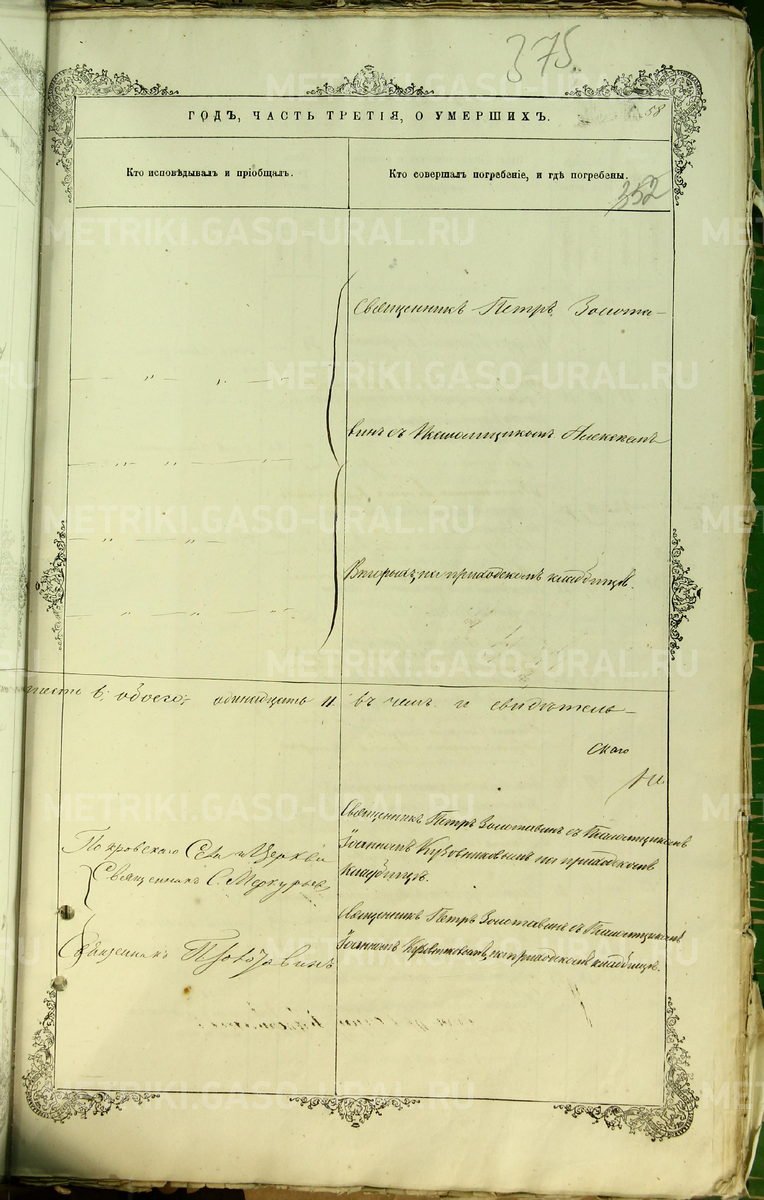 375.
58
ГОДЪ, ЧАСТЬ ТРЕТІЯ, О УМЕРШИХЪ.
Кто исповѣдывалъ и пріобщалъ.
Кто совершалъ погребеніе, и гдѣ погребены.
352
Священникъ Петръ Золота-
винъ съ Псаломщикомъ Алексѣемъ
на приходскомъ кладбищѣ.
шесть 6; обоего; одинадцать 11.
въ чемъ и свидѣтель-
скаго
Священникъ Петръ Золотавинъ съ Псаломщикомъ
Іоанномъ Кузовниковымъ на приходскомъ
кладбищѣ.
Покровскаго Села Церкви
Священникъ С. Меркурьевъ
Священникъ Петръ Золотавинъ съ Псаломщикомъ
Іоанномъ Кузовниковымъ, на приходскомъ кладбищѣ.
Священникъ П Золотавинъ
METRIKI.GASO-URAL.RU